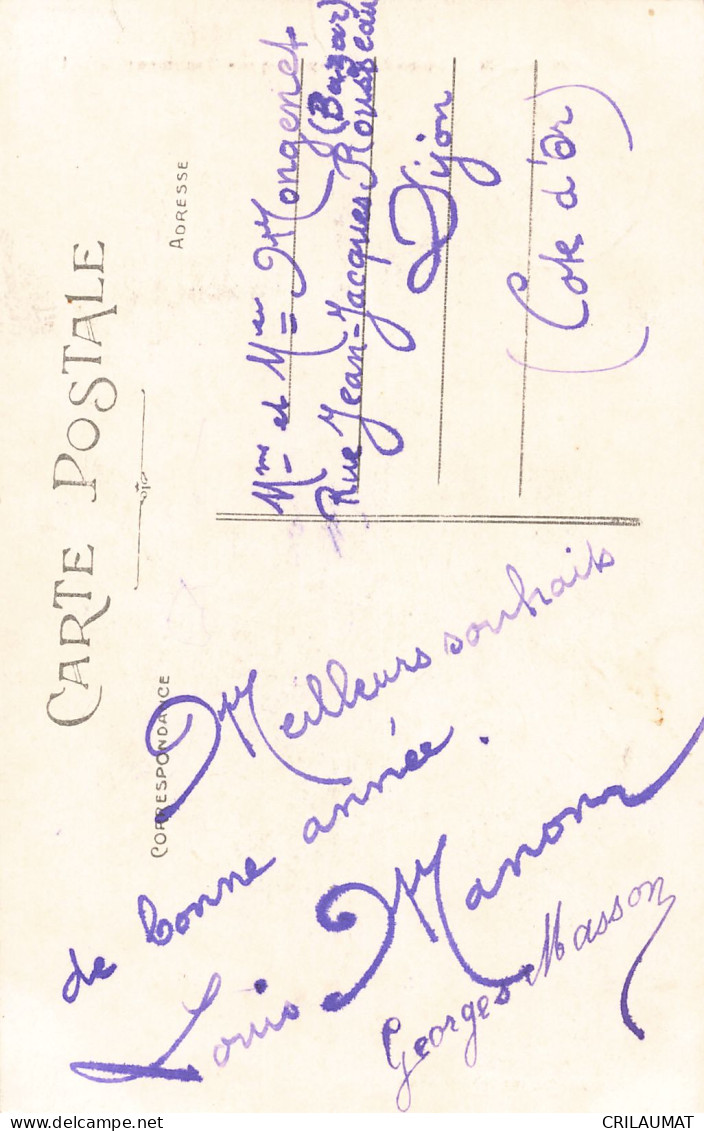 CARTE POSTALE
CORRESPONDANCE
ADRESSE
Meilleurs souhaits
de bonne année.
Louis Manon
Georges Masson
Mme et Mr Mongenet
(Bazar)
Rue Jean-Jacques Rousseau
Dijon
(Cote d'Or)
CRILAUMAT